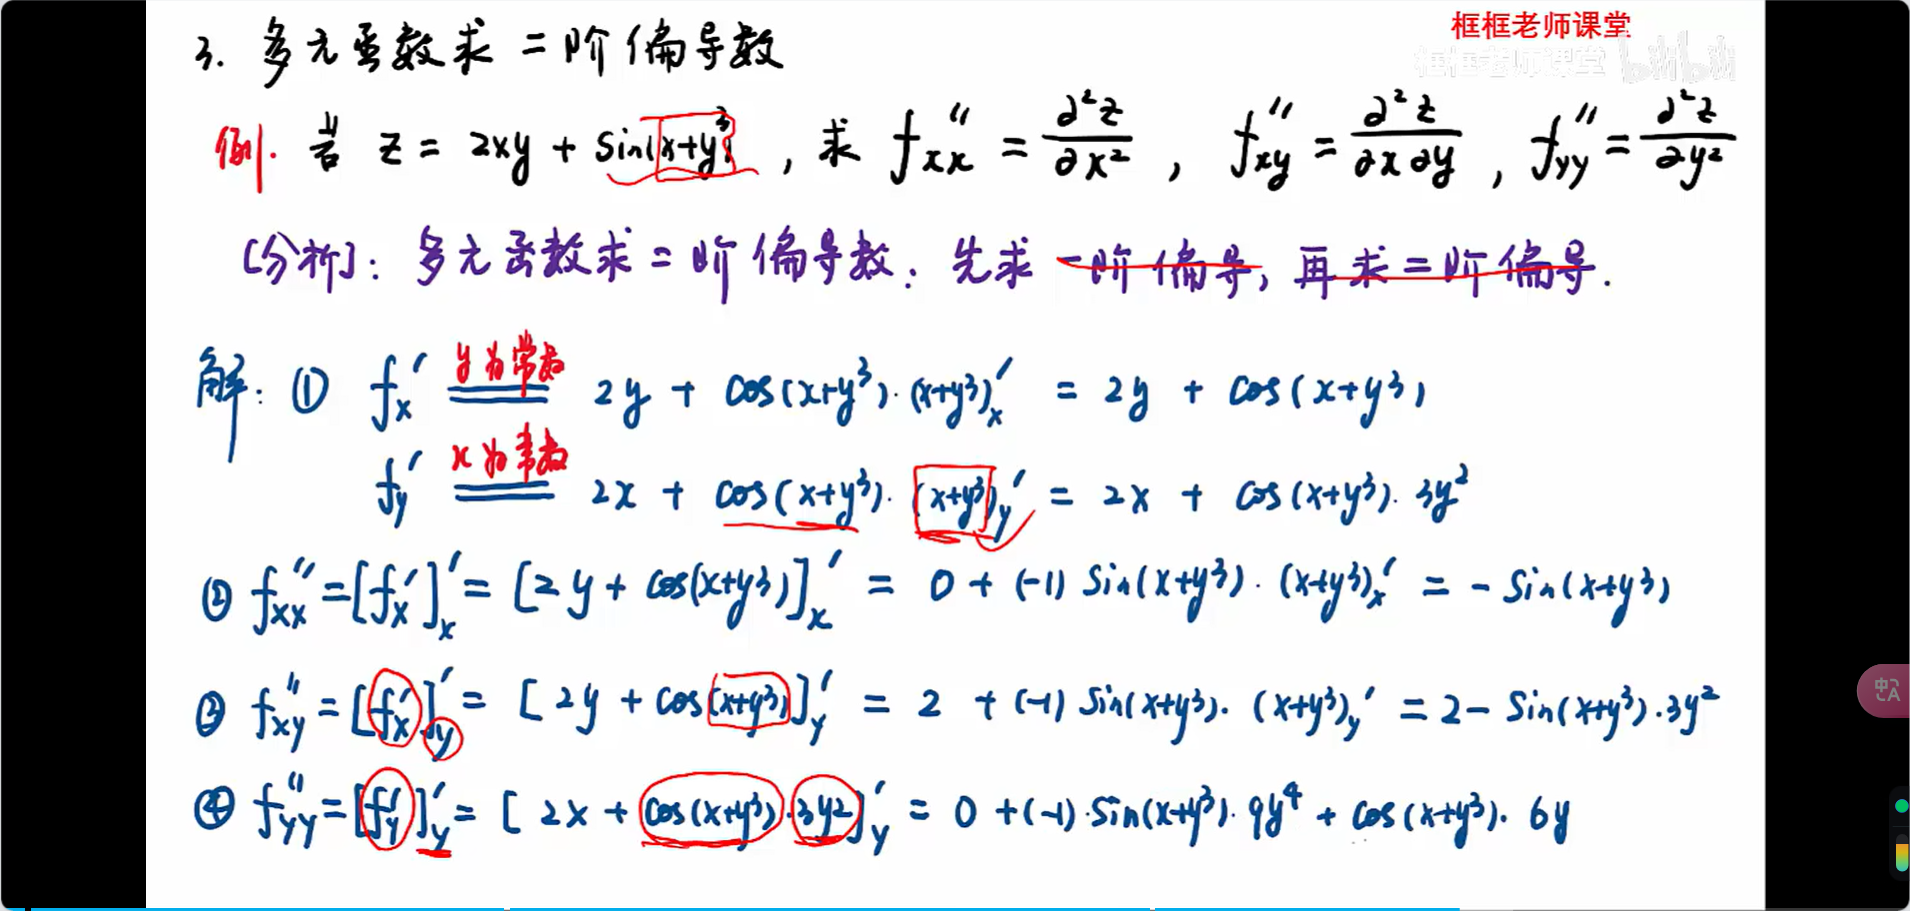 框框老师课堂
框框老师课堂 bilibili
3. 多元函数求二阶偏导数
例. 若 z = 2xy + sin(x+y³), 求 f''xx = ∂²z/∂x², f''xy = ∂²z/∂x∂y, f''yy = ∂²z/∂y²
[分析]: 多元函数求二阶偏导数: 先求一阶偏导, 再求二阶偏导.
解: ① f'x (y为常数)== 2y + cos(x+y³)·(x+y³)'x = 2y + cos(x+y³)
f'y (x为常数)== 2x + cos(x+y³)·(x+y³)'y = 2x + cos(x+y³)·3y²
② f''xx = [f'x]'x = [2y + cos(x+y³)]'x = 0 + (-1) Sin(x+y³)·(x+y³)'x = - Sin(x+y³)
③ f''xy = [f'x]'y = [2y + cos(x+y³)]'y = 2 + (-1) Sin(x+y³)·(x+y³)'y = 2 - Sin(x+y³)·3y²
④ f''yy = [f'y]'y = [2x + cos(x+y³)·3y²]'y = 0 + (-1)·Sin(x+y³)·9y⁴ + cos(x+y³)·6y
中A